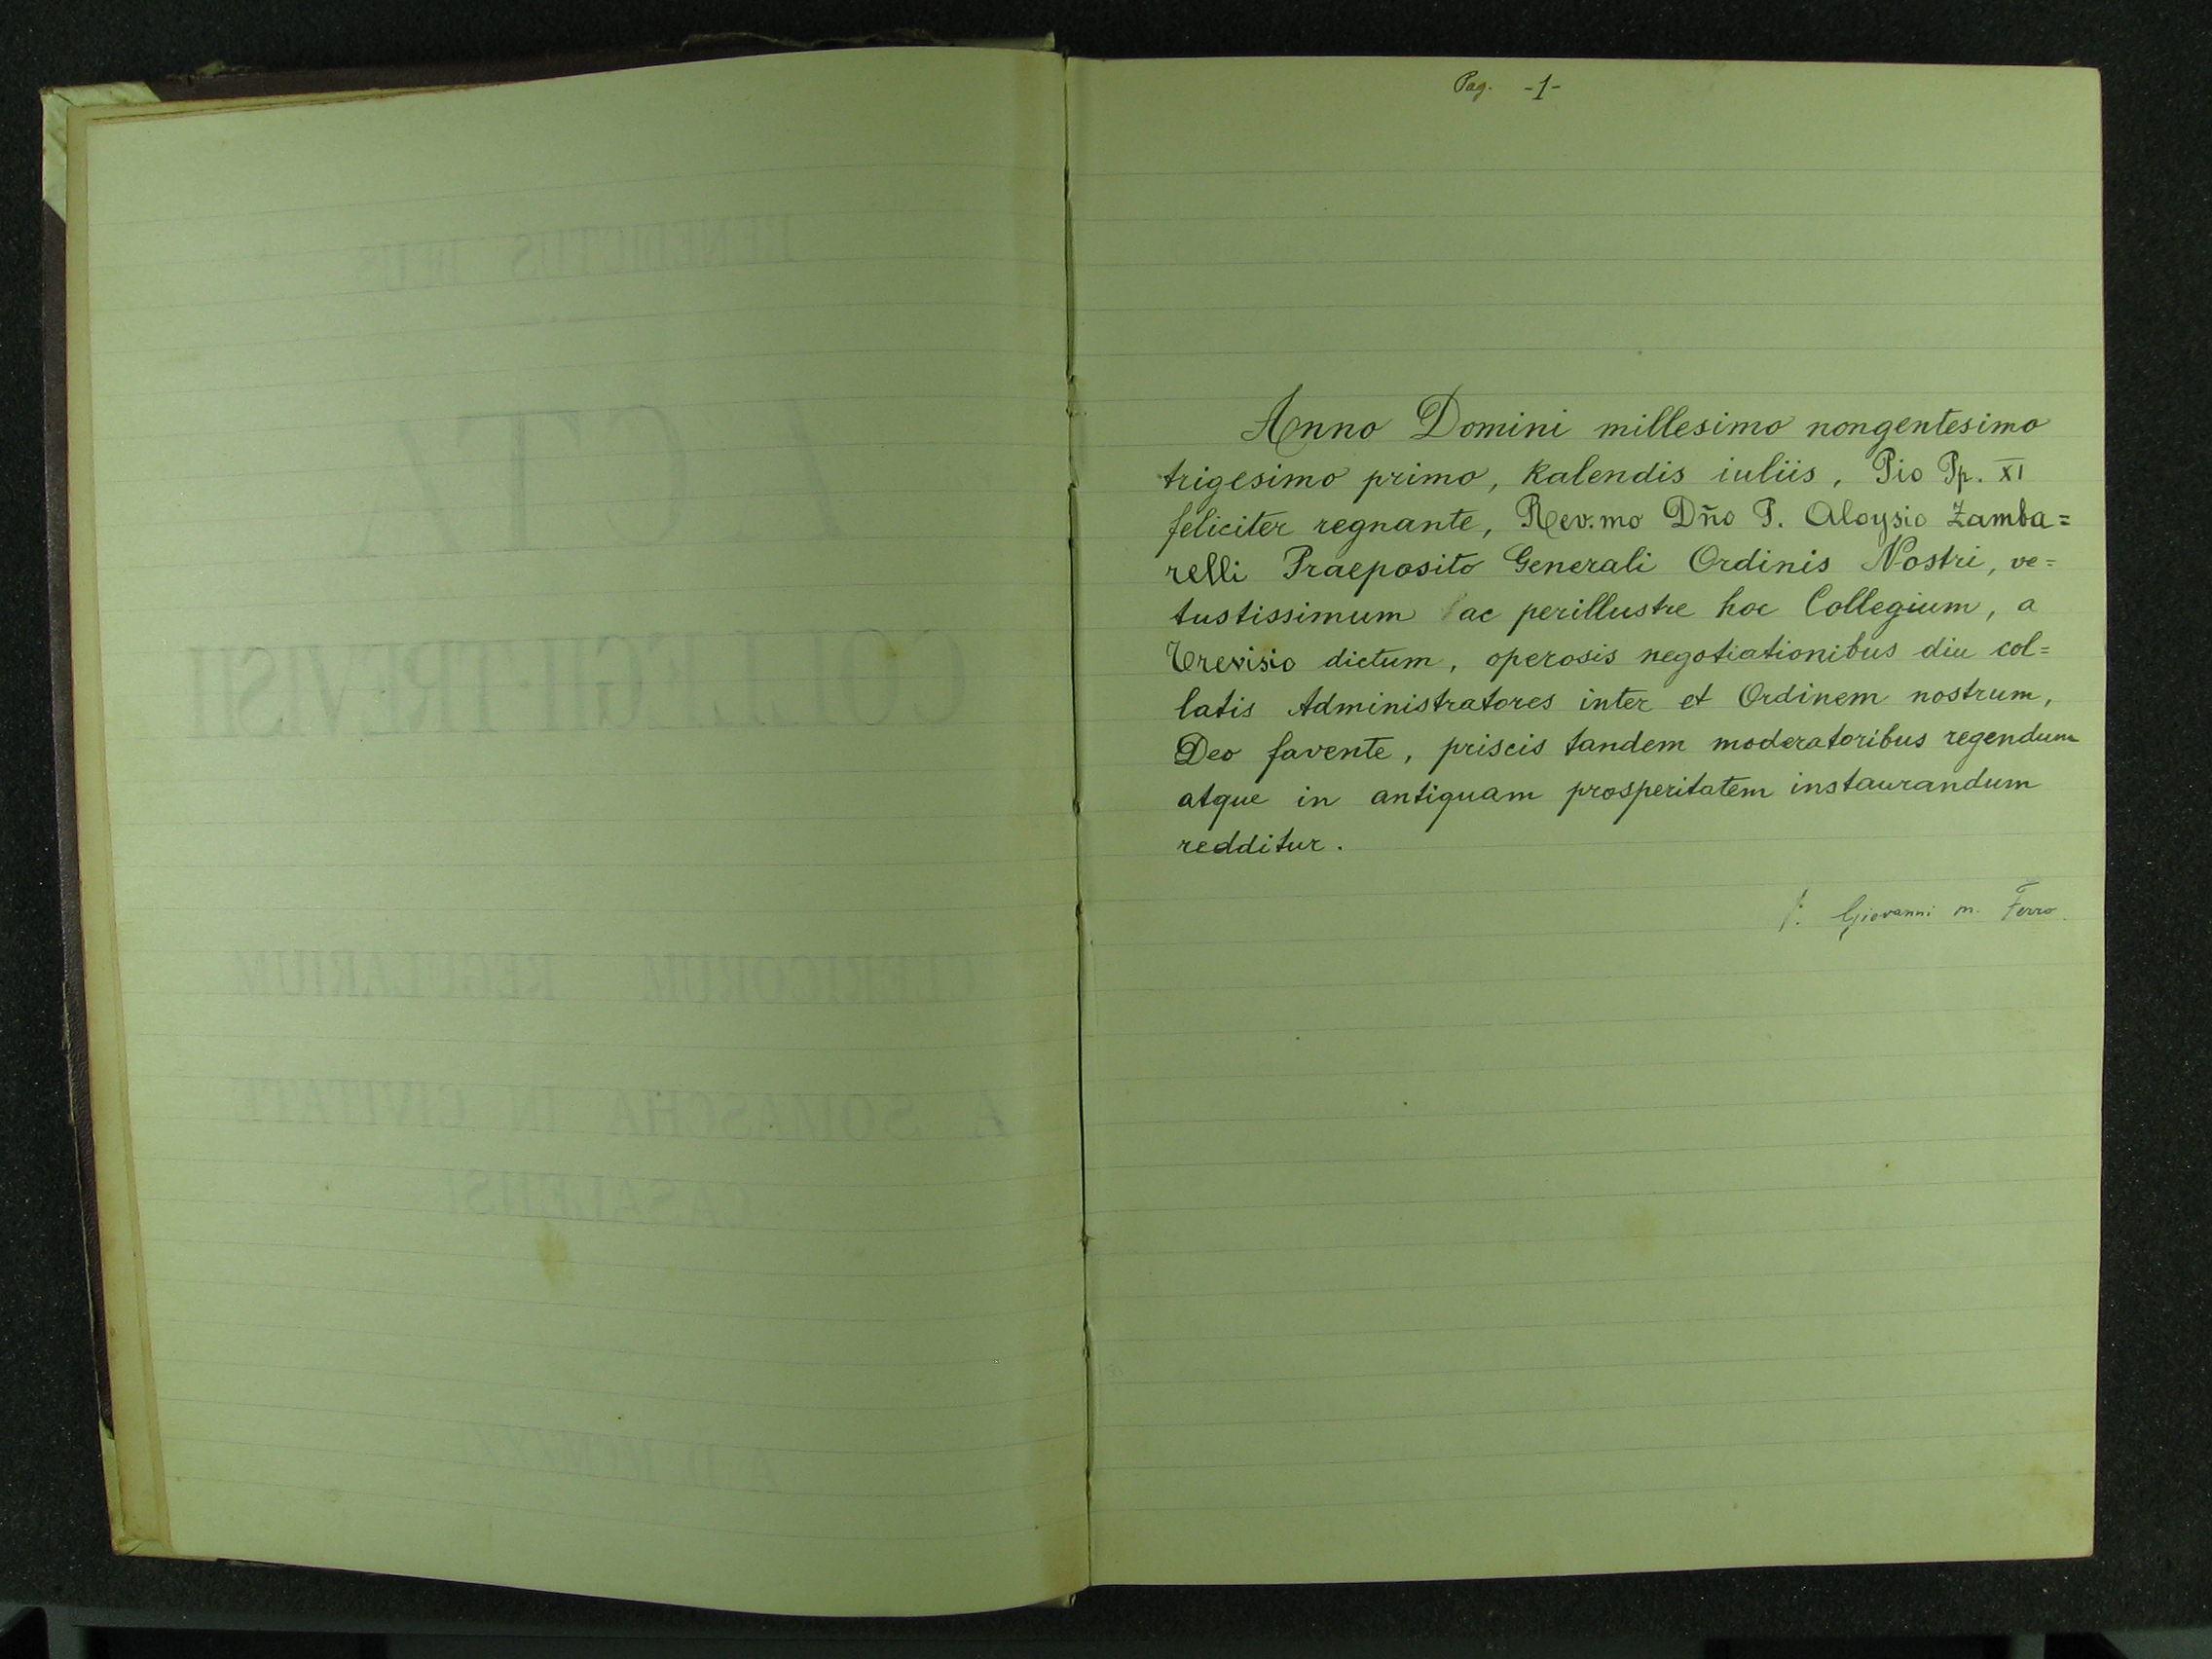 BENEDICTUS DEUS
ACTA
COLLEGII-TREVISII
CLERICORUM REGULARIUM
A SOMASCHA IN CIVITATE
A. D.
Pag. -1-
Anno Domini millesimo nongentesimo
trigesimo primo, Kalendis iuliis, Pio Pp. XI
feliciter regnante, Rev.mo Dño P. Aloysio Zamba=
relli Praeposito Generali Ordinis Nostri, ve=
tustissimum ac perillustre hoc Collegium, a
Trevisio dictum, operosis negotiationibus diu col=
latis Administratores inter et Ordinem nostrum,
Deo favente, priscis tandem moderatoribus regendum
atque in antiquam prosperitatem instaurandum
redditur.
P. Giovanni M. Ferro.